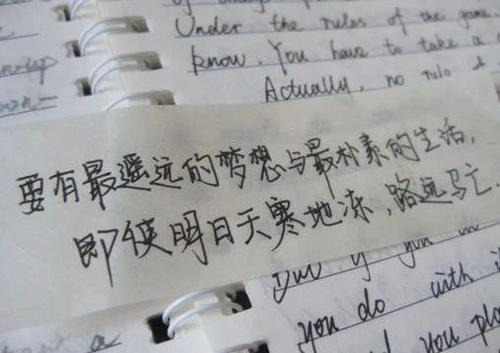 Under the rules of the game
know. You have to take a
Actually, no rule
要有最遥远的梦想与最朴素的生活,
即使明日天寒地冻,路远马亡
you do with
you